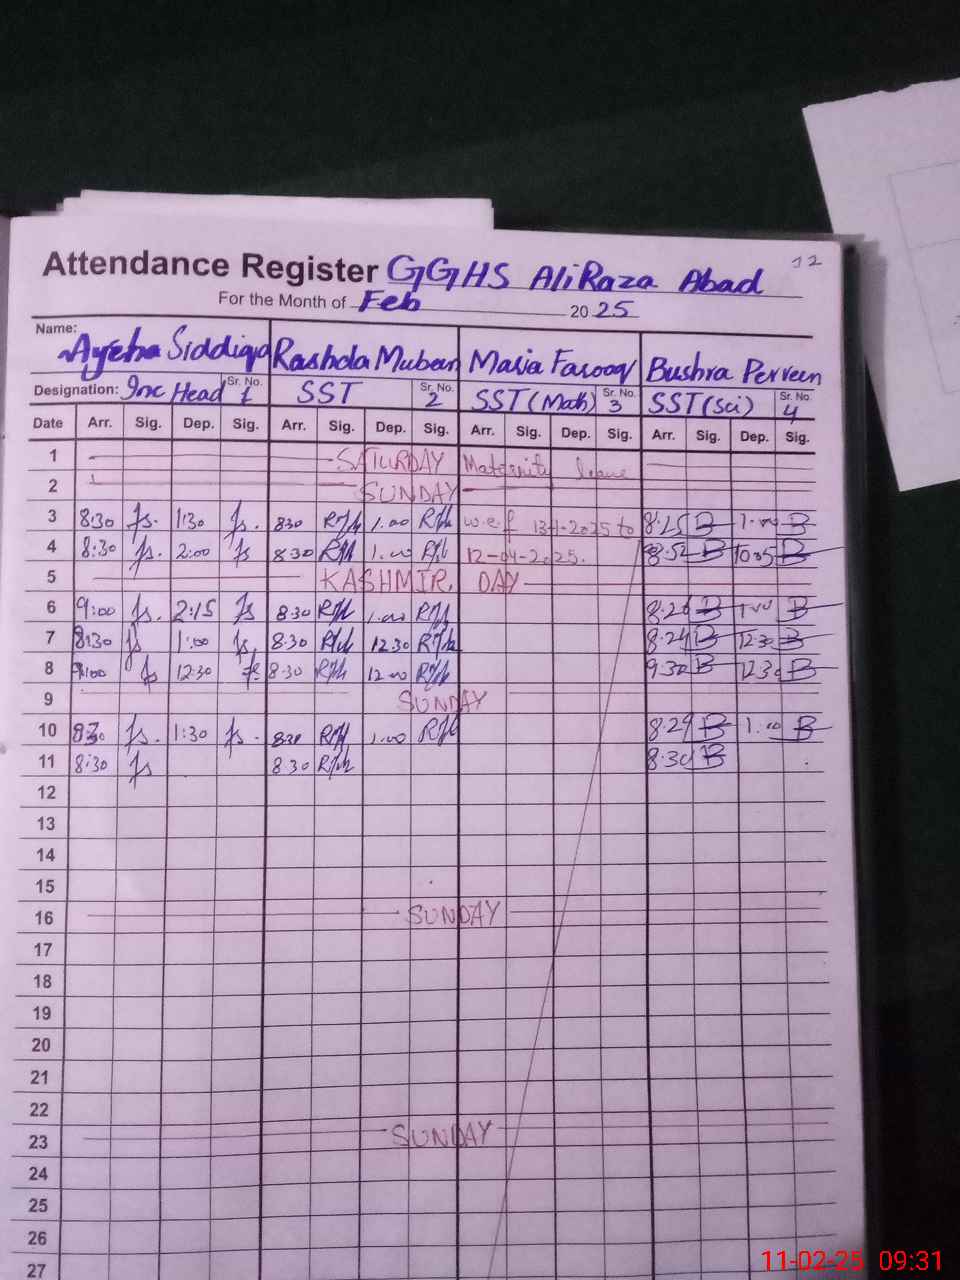 12
Attendance Register GGHS Ali Raza Abad
For the Month of Feb 2025
Name: Ayesha Siddiqa Rashda Muban Maria Farooq Bushra Perveen
Designation: Inc Head Sr. No. 1 SST Sr. No. 2 SST (Math) Sr. No. 3 SST (Sci) Sr. No. 4
Date Arr. Sig. Dep. Sig. Arr. Sig. Dep. Sig. Arr. Sig. Dep. Sig. Arr. Sig. Dep. Sig.
1 SATURDAY Maternity leave
2 SUNDAY
3 8:30 1:30 830 1.00 w.e.f 13-1-2025 to 8.25 B 1.00 B
4 8:30 2:00 8.30 1.00 12-04-2025. 8.52 B B
5 KASHMIR DAY
6 9:00 2:15 8.30 1.00 8.26 B 1.00 B
7 8:30 1:00 8.30 12.30 8.24 B 12.30 B
8 9:00 12:30 8.30 12.00 9.30 B 12.30 B
9 SUNDAY
10 1:30 830 1.00 8.29 B 1.00 B
11 8:30 8.30 8.30 B
12
13
14
15
16 SUNDAY
17
18
19
20
21
22
23 SUNDAY
24
25
26
27
11-02-25 09:31